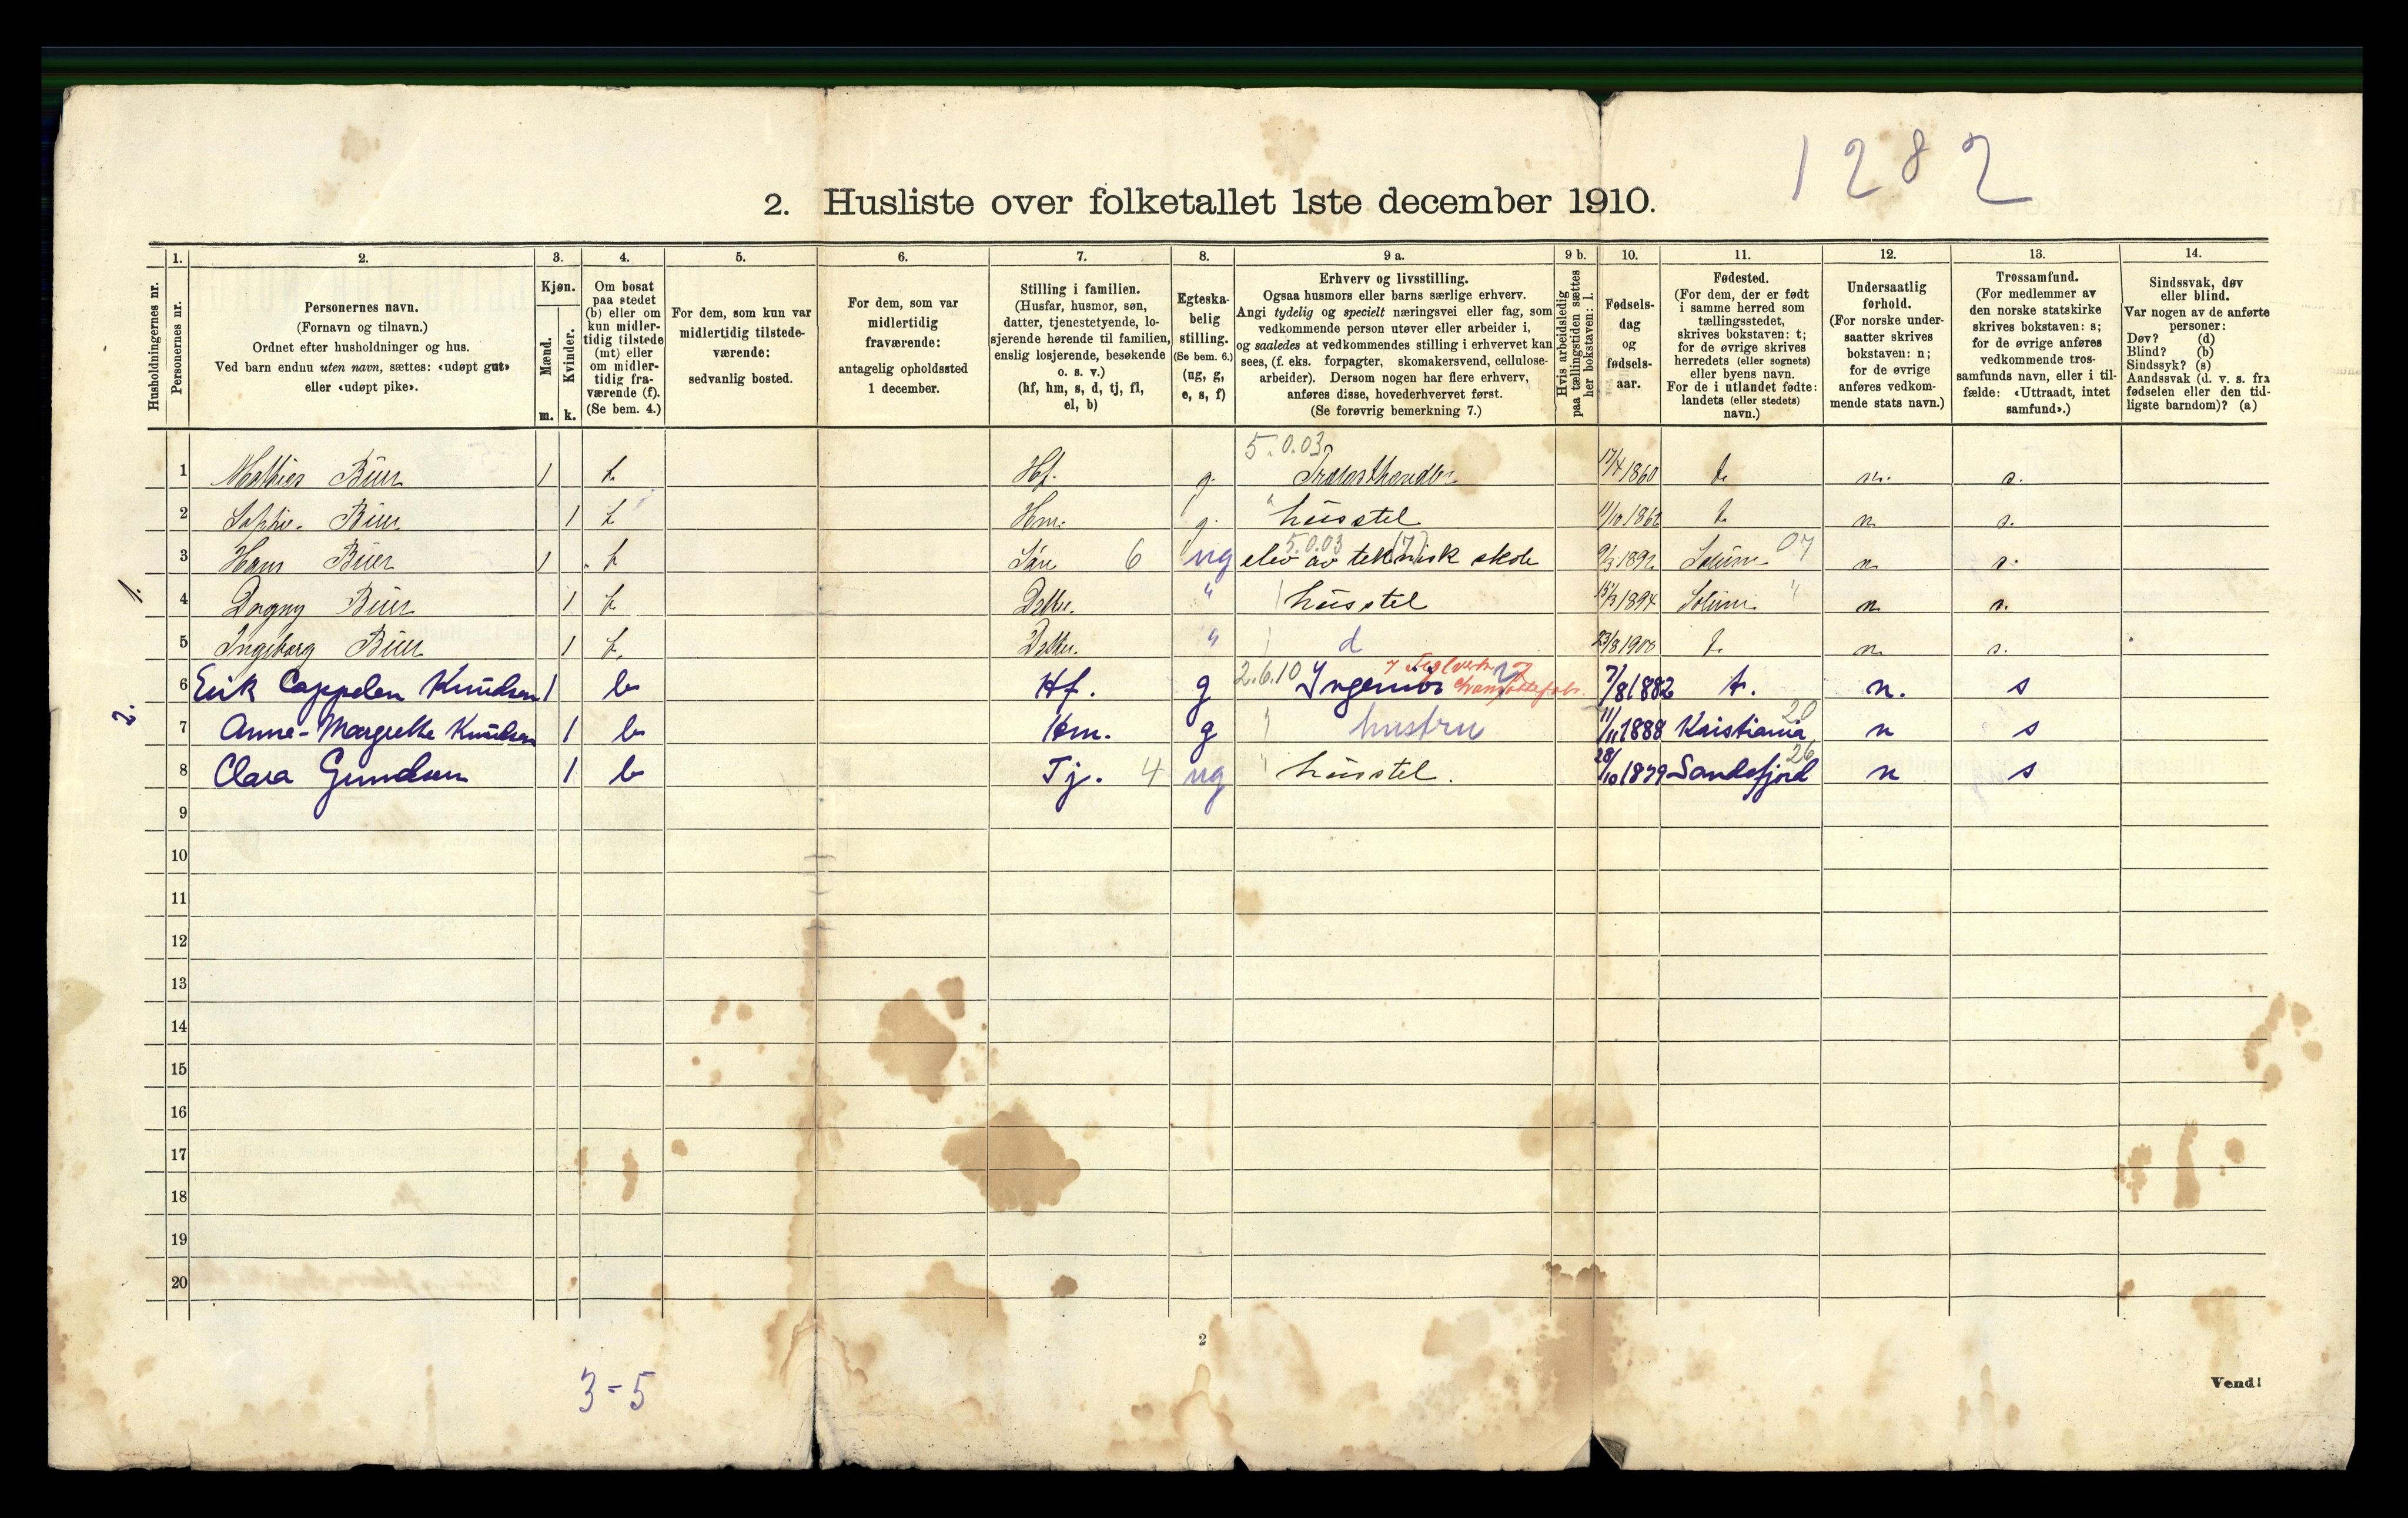 1282
2. Husliste over folketallet 1ste december 1910.
Husholdningernes nr.
1. Personernes nr.
2. Personernes navn.
(Fornavn og tilnavn.)
Ordnet efter husholdninger og hus.
Ved barn endnu uten navn, sættes: «udøpt gut»
eller «udøpt pike».
3. Kjøn.
Mænd. m.
Kvinder. k.
4. Om bosat
paa stedet
(b) eller om
kun midler-
tidig tilstede
(mt) eller
om midler-
tidig fra-
værende (f).
(Se bem. 4.)
5. For dem, som kun var
midlertidig tilstede-
værende:
sedvanlig bosted.
6. For dem, som var
midlertidig
fraværende:
antagelig opholdssted
1 december.
7. Stilling i familien.
(Husfar, husmor, søn,
datter, tjenestetyende, lo-
sjerende hørende til familien,
enslig losjerende, besøkende
o. s. v.)
(hf, hm, s, d, tj, fl,
el, b)
8. Egteska-
belig
stilling.
(Se bem. 6.)
(ug, g,
e, s, f)
9 a. Erhverv og livsstilling.
Ogsaa husmors eller barns særlige erhverv.
Angi tydelig og specielt næringsvei eller fag, som
vedkommende person utøver eller arbeider i,
og saaledes at vedkommendes stilling i erhvervet kan
sees, (f. eks. forpagter, skomakersvend, cellulose-
arbeider). Dersom nogen har flere erhverv,
anføres disse, hovederhvervet først.
(Se forøvrig bemerkning 7.)
9 b. Hvis arbeidsledig
paa tællingstiden sættes
her bokstaven: l.
10. Fødsels-
dag
og
fødsels-
aar.
11. Fødested.
(For dem, der er født
i samme herred som
tællingsstedet,
skrives bokstaven: t;
for de øvrige skrives
herredets (eller sognets)
eller byens navn.
For de i utlandet fødte:
landets (eller stedets)
navn.)
12. Undersaatlig
forhold.
(For norske under-
saatter skrives
bokstaven: n;
for de øvrige
anføres vedkom-
mende stats navn.)
13. Trossamfund.
(For medlemmer av
den norske statskirke
skrives bokstaven: s;
for de øvrige anføres
vedkommende tros-
samfunds navn, eller i til-
fælde: «Uttraadt, intet
samfund».)
14. Sindssvak, døv
eller blind.
Var nogen av de anførte
personer:
Døv? (d)
Blind? (b)
Sindssyk? (s)
Aandssvak (d. v. s. fra
fødselen eller den tid-
ligste barndom)? (a)
5.0.03
1 Mathias Buer 1 b Hf. g. Trælasthandler 17/4 1860 t. n. s.
2 Sophie Buer 1 b Hm. g. husstel 11/10 t. n s.
5.0.03
1. 3 Hans Buer 1 b Søn 6 ug elev av teknisk skole 9/3 1892 Solum 07 n s.
4 Dagny Buer 1 b Datter. " husstel 15/3 1894 Solum " n s.
5 Ingeborg Buer 1 b. Datter. " d 23/8 1900 t. n s.
2. 6 Erik Cappelen Knudsen 1 b Hf. g 2.6.10 Ingeniør 7/8 1882 t. n. s
7 Anne-Margrethe Knudsen 1 b Hm. g hustru 11/11 1888 Kristiania 20 n s
8 Clara Gundersen 1 b Tj. 4 ug husstel. 28/10 1879 Sandefjord 26 n s
9
10
11
12
13
14
15
16
17
18
19
20
2
3-5
Vend!